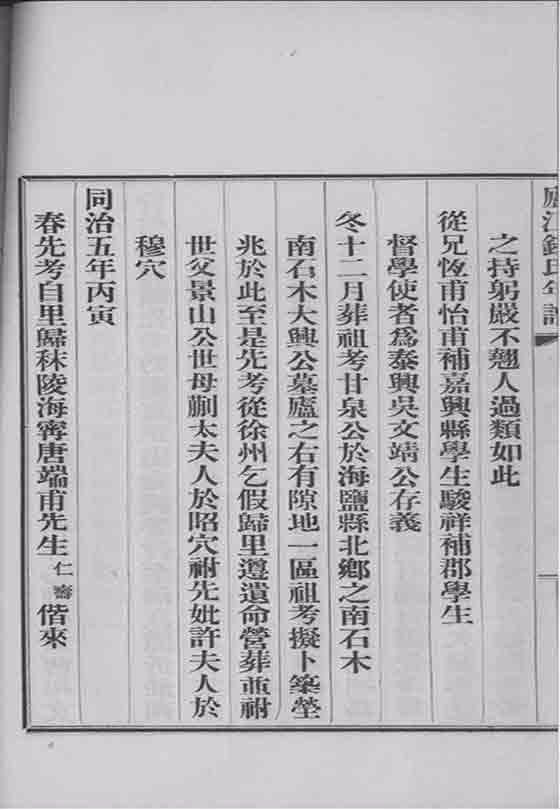 廬江錢氏年譜
之持躬嚴不翹人過類如此
從兄恆甫怡甫補嘉興縣學生駿祥補郡學生
督學使者爲泰興吳文靖公存義
冬十二月葬祖考甘泉公於海鹽縣北鄉之南石木
南石木大興公墓廬之右有隙地一區祖考擬卜築塋
兆於此至是先考從徐州乞假歸里遵遺命營葬並祔
世父景山公世母蒯太夫人於昭穴祔先妣許夫人於
穆穴
同治五年丙寅
春先考自里歸秣陵海寧唐端甫先生仁壽偕來